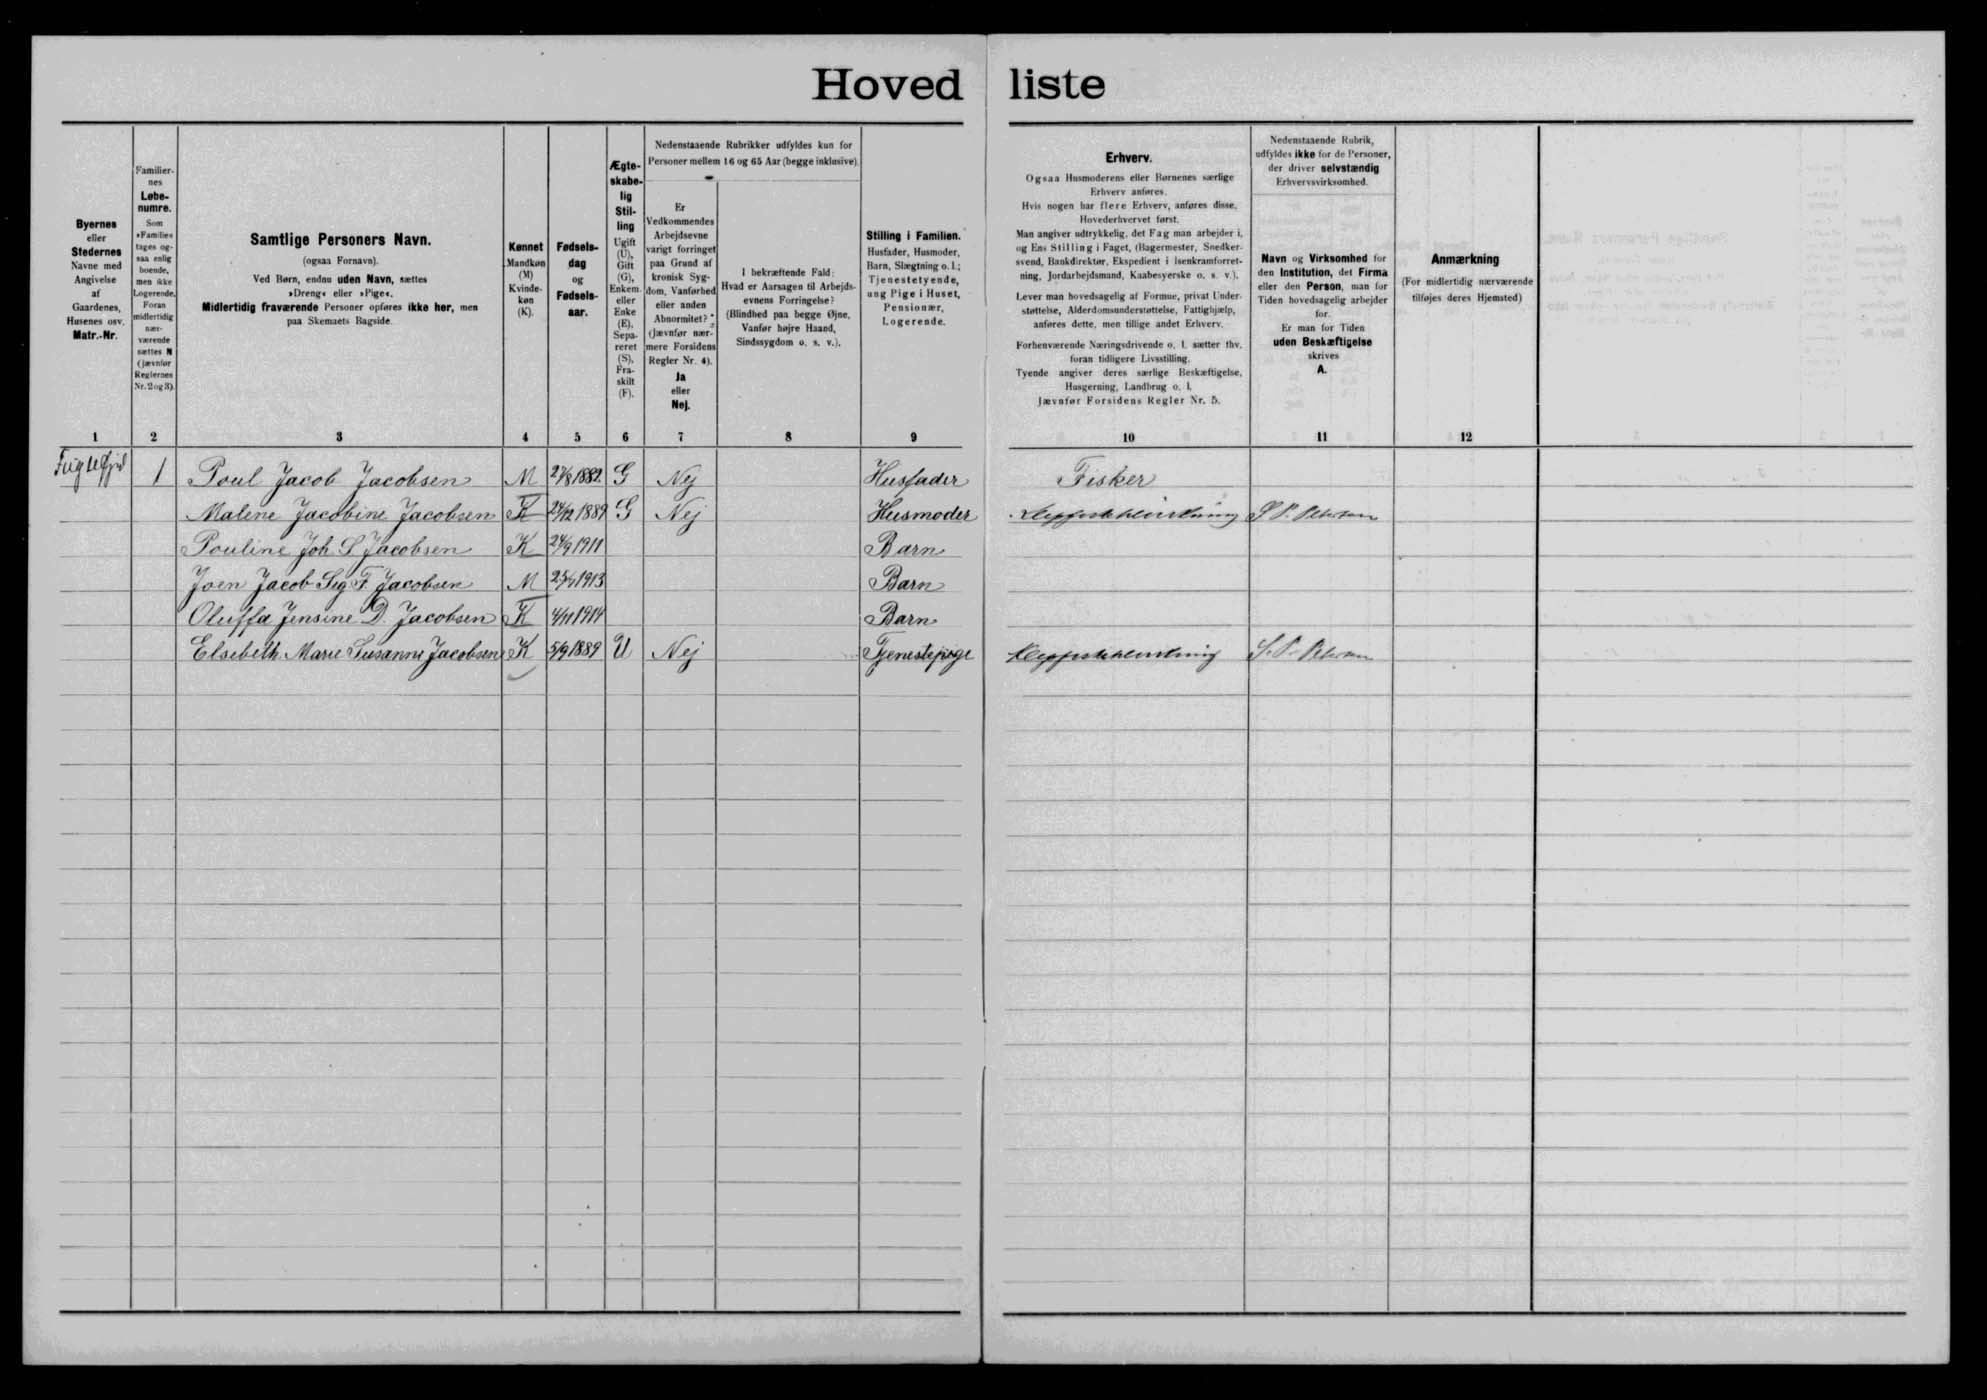 Hovedliste
Byernes
eller
Stedernes
Navne med
Angivelse
af
Gaardenes,
Husenes osv.
Matr.-Nr.
Familier-
nes
Løbe-
numre.
Som
»Familie«
tages og-
saa enlig
boende,
men ikke
Logerende.
Foran
midlertidig
nær-
værende
sættes N
(jævnfør
Reglernes
Nr. 2 og 3).
Samtlige Personers Navn.
(ogsaa Fornavn).
Ved Børn, endnu uden Navn, sættes
»Dreng« eller »Pige«.
Midlertidig fraværende Personer opføres ikke her, men
paa Skemaets Bagside.
Kønnet
Mandkøn
(M)
Kvinde-
køn
(K).
Fødsels-
dag
og
Fødsels-
aar.
Ægte-
skabe-
lig
Stil-
ling
Ugift
(U),
Gift
(G),
Enkem.
eller
Enke
(E),
Sepa-
reret
(S),
Fra-
skilt
(F).
Nedenstaaende Rubrikker udfyldes kun for
Personer mellem 16 og 65 Aar (begge inklusive).
Er
Vedkommendes
Arbejdsevne
varigt forringet
paa Grund af
kronisk Syg-
dom, Vanførhed
eller anden
Abnormitet?
(Jævnfør nær-
mere Forsidens
Regler Nr. 4).
Ja
eller
Nej.
I bekræftende Fald:
Hvad er Aarsagen til Arbejds-
evnens Forringelse?
(Blindhed paa begge Øjne,
Vanfør højre Haand,
Sindssygdom o. s. v.).
Stilling i Familien.
Husfader, Husmoder,
Barn, Slægtning o. l.;
Tjenestetyende,
ung Pige i Huset,
Pensionær,
Logerende.
Erhverv.
Ogsaa Husmoderens eller Børnenes særlige
Erhverv anføres.
Hvis nogen har flere Erhverv, anføres disse,
Hovederhvervet først.
Man angiver udtrykkelig, det Fag man arbejder i,
og Ens Stilling i Faget, (Bagermester, Snedker-
svend, Bankdirektør, Ekspedient i Isenkramforret-
ning, Jordarbejdsmand, Kaabesyerske o. s. v.).
Lever man hovedsagelig af Formue, privat Under-
støttelse, Alderdomsunderstøttelse, Fattighjælp,
anføres dette, men tillige andet Erhverv.
Forhenværende Næringsdrivende o. l. sætter thv.
foran tidligere Livsstilling.
Tyende angiver deres særlige Beskæftigelse,
Husgerning, Landbrug o. l.
Jævnfør Forsidens Regler Nr. 5.
Nedenstaaende Rubrik,
udfyldes ikke for de Personer,
der driver selvstændig
Erhvervsvirksomhed.
Navn og Virksomhed for
den Institution, det Firma
eller den Person, man for
Tiden hovedsagelig arbejder
for.
Er man for Tiden
uden Beskæftigelse
skrives
A.
Anmærkning
(For midlertidig nærværende
tilføjes deres Hjemsted)
1 2 3 4 5 6 7 8 9 10 11 12
1 Poul Jacob Jacobsen M 1882 G Nej Husfader Fisker
Malene Jacobine Jacobsen K 24/12 1889 G Nej Husmoder
Pouline Joh. S Jacobsen K 24/9 1911 Barn
Joen Jacob Sig F. Jacobsen M 1913 Barn
Oluffa Jensine D. Jacobsen K 4/11 1914 Barn
Elsebeth Marie Susanne Jacobsen K 5/9 1889 U Nej Tjenestepige